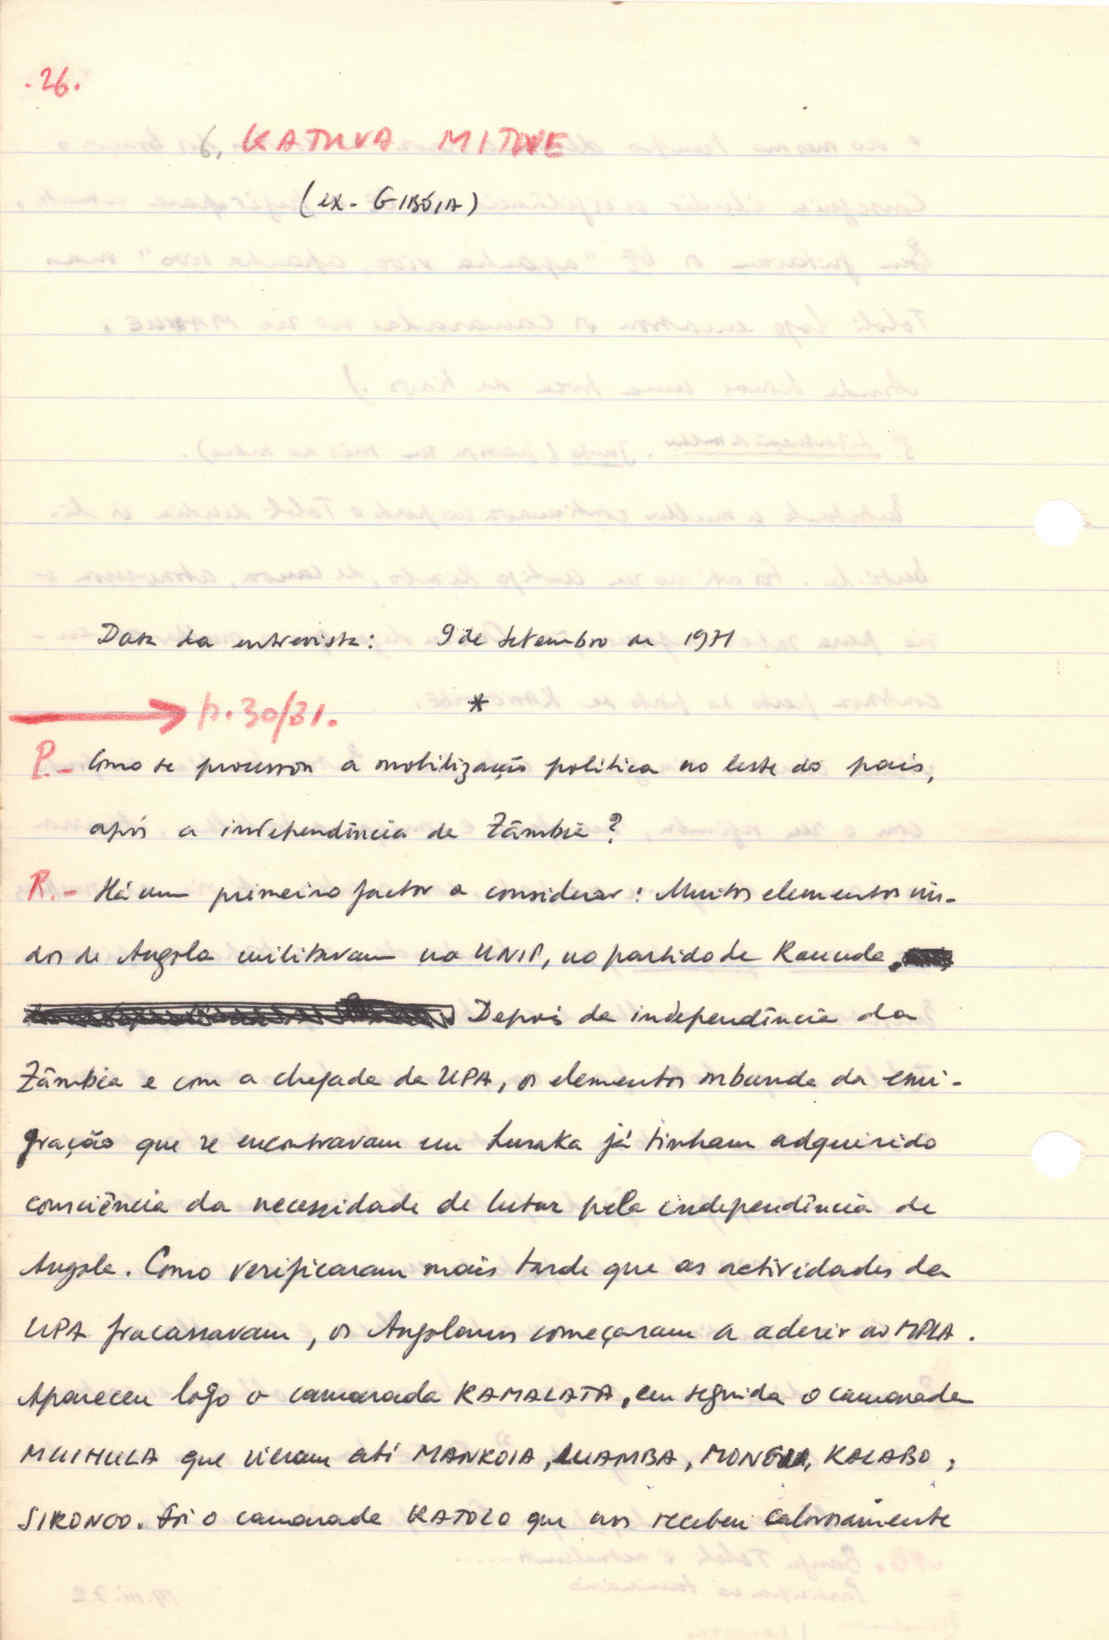 .26.
6. KATUVA MITWE
(ex- GIBÓIA)
Data da entrevista: 9 de Setembro de 1971
p. 30/31. *
P.- Como se processou a mobilização política no leste do país,
após a independência da Zâmbia?
R.- Há um primeiro factor a considerar: Muitos elementos vin-
dos de Angola militavam na UNIP, no partido de Kaunda.
Depois da independência da
Zâmbia e com a chegada da UPA, os elementos mbunda da emi-
gração que se encontravam em Lusaka já tinham adquirido
consciência da necessidade de lutar pela independência de
Angola. Como verificaram mais tarde que as actividades da
UPA fracassavam, os Angolanos começaram a aderir ao MPLA.
Apareceu logo o camarada KAMALATA, em seguida o camarada
MUIHULA que vieram até MANKOIA, LUAMBA, KALABO,
SIKONGO. Foi o camarada KATOLO que nos recebeu calorosamente